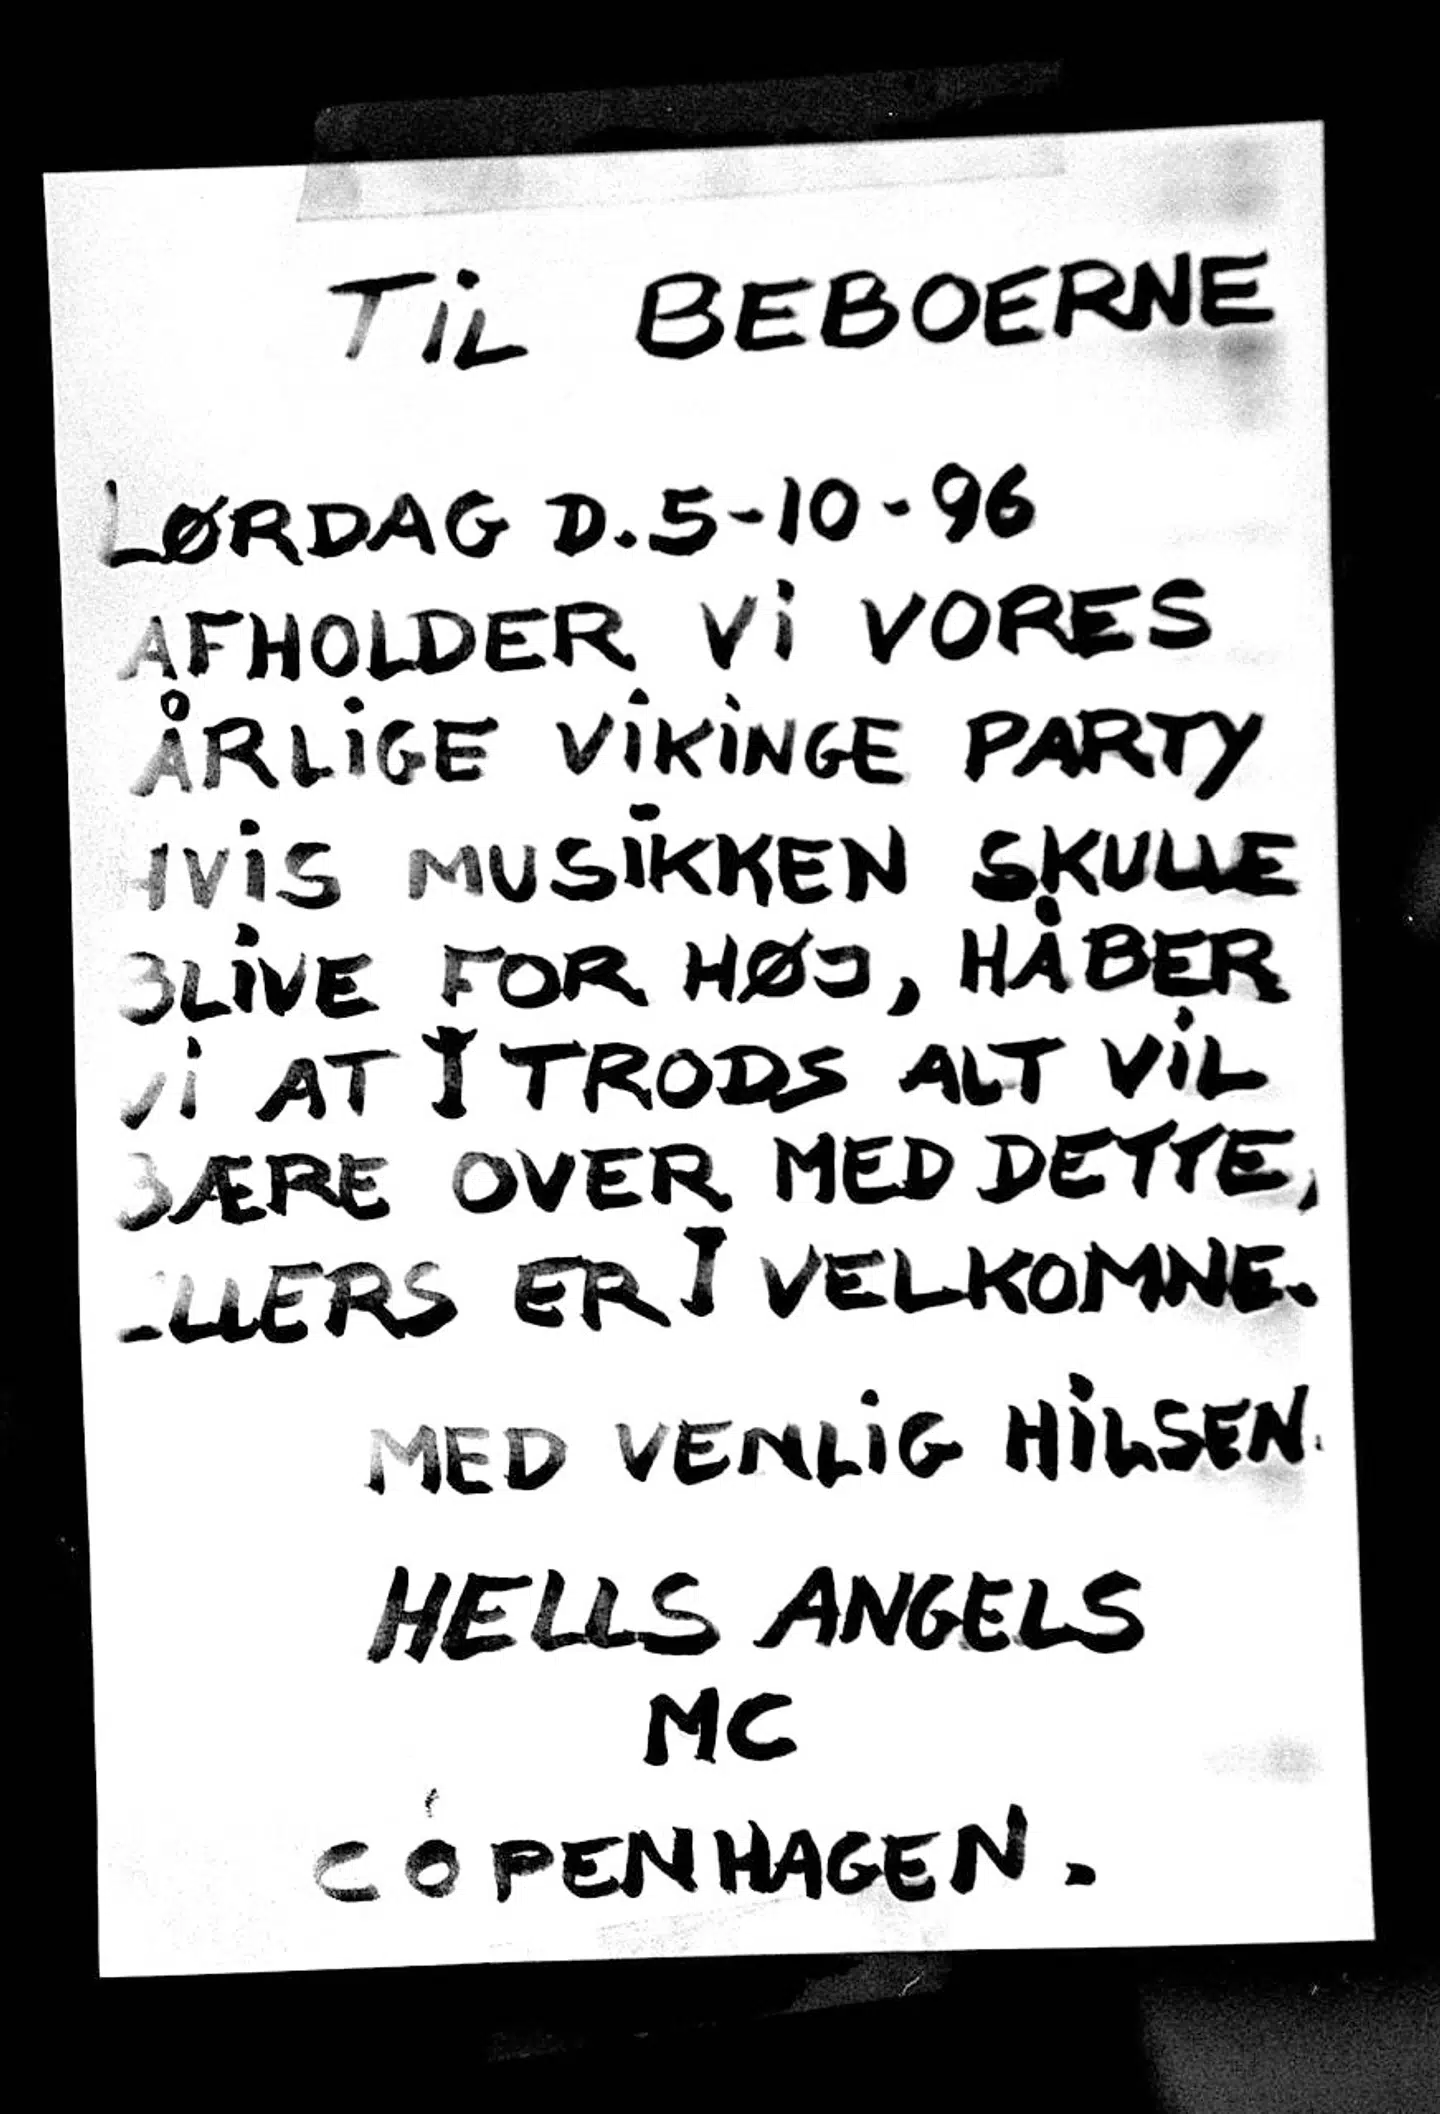 TiL BEBOERNE
LØRDAG D.5-10-96
AFHOLDER Vi VORES
ÅRLiGE ViKiNGE PARTY
HViS MUSiKKEN SKULLE
BLiVE FOR HØJ, HÅBER
Vi AT I TRODS ALT ViL
BÆRE OVER MED DETTE,
ELLERS ER I VELKOMNE.
MED VENLiG HiLSEN.
HELLS ANGELS
MC
COPENHAGEN.